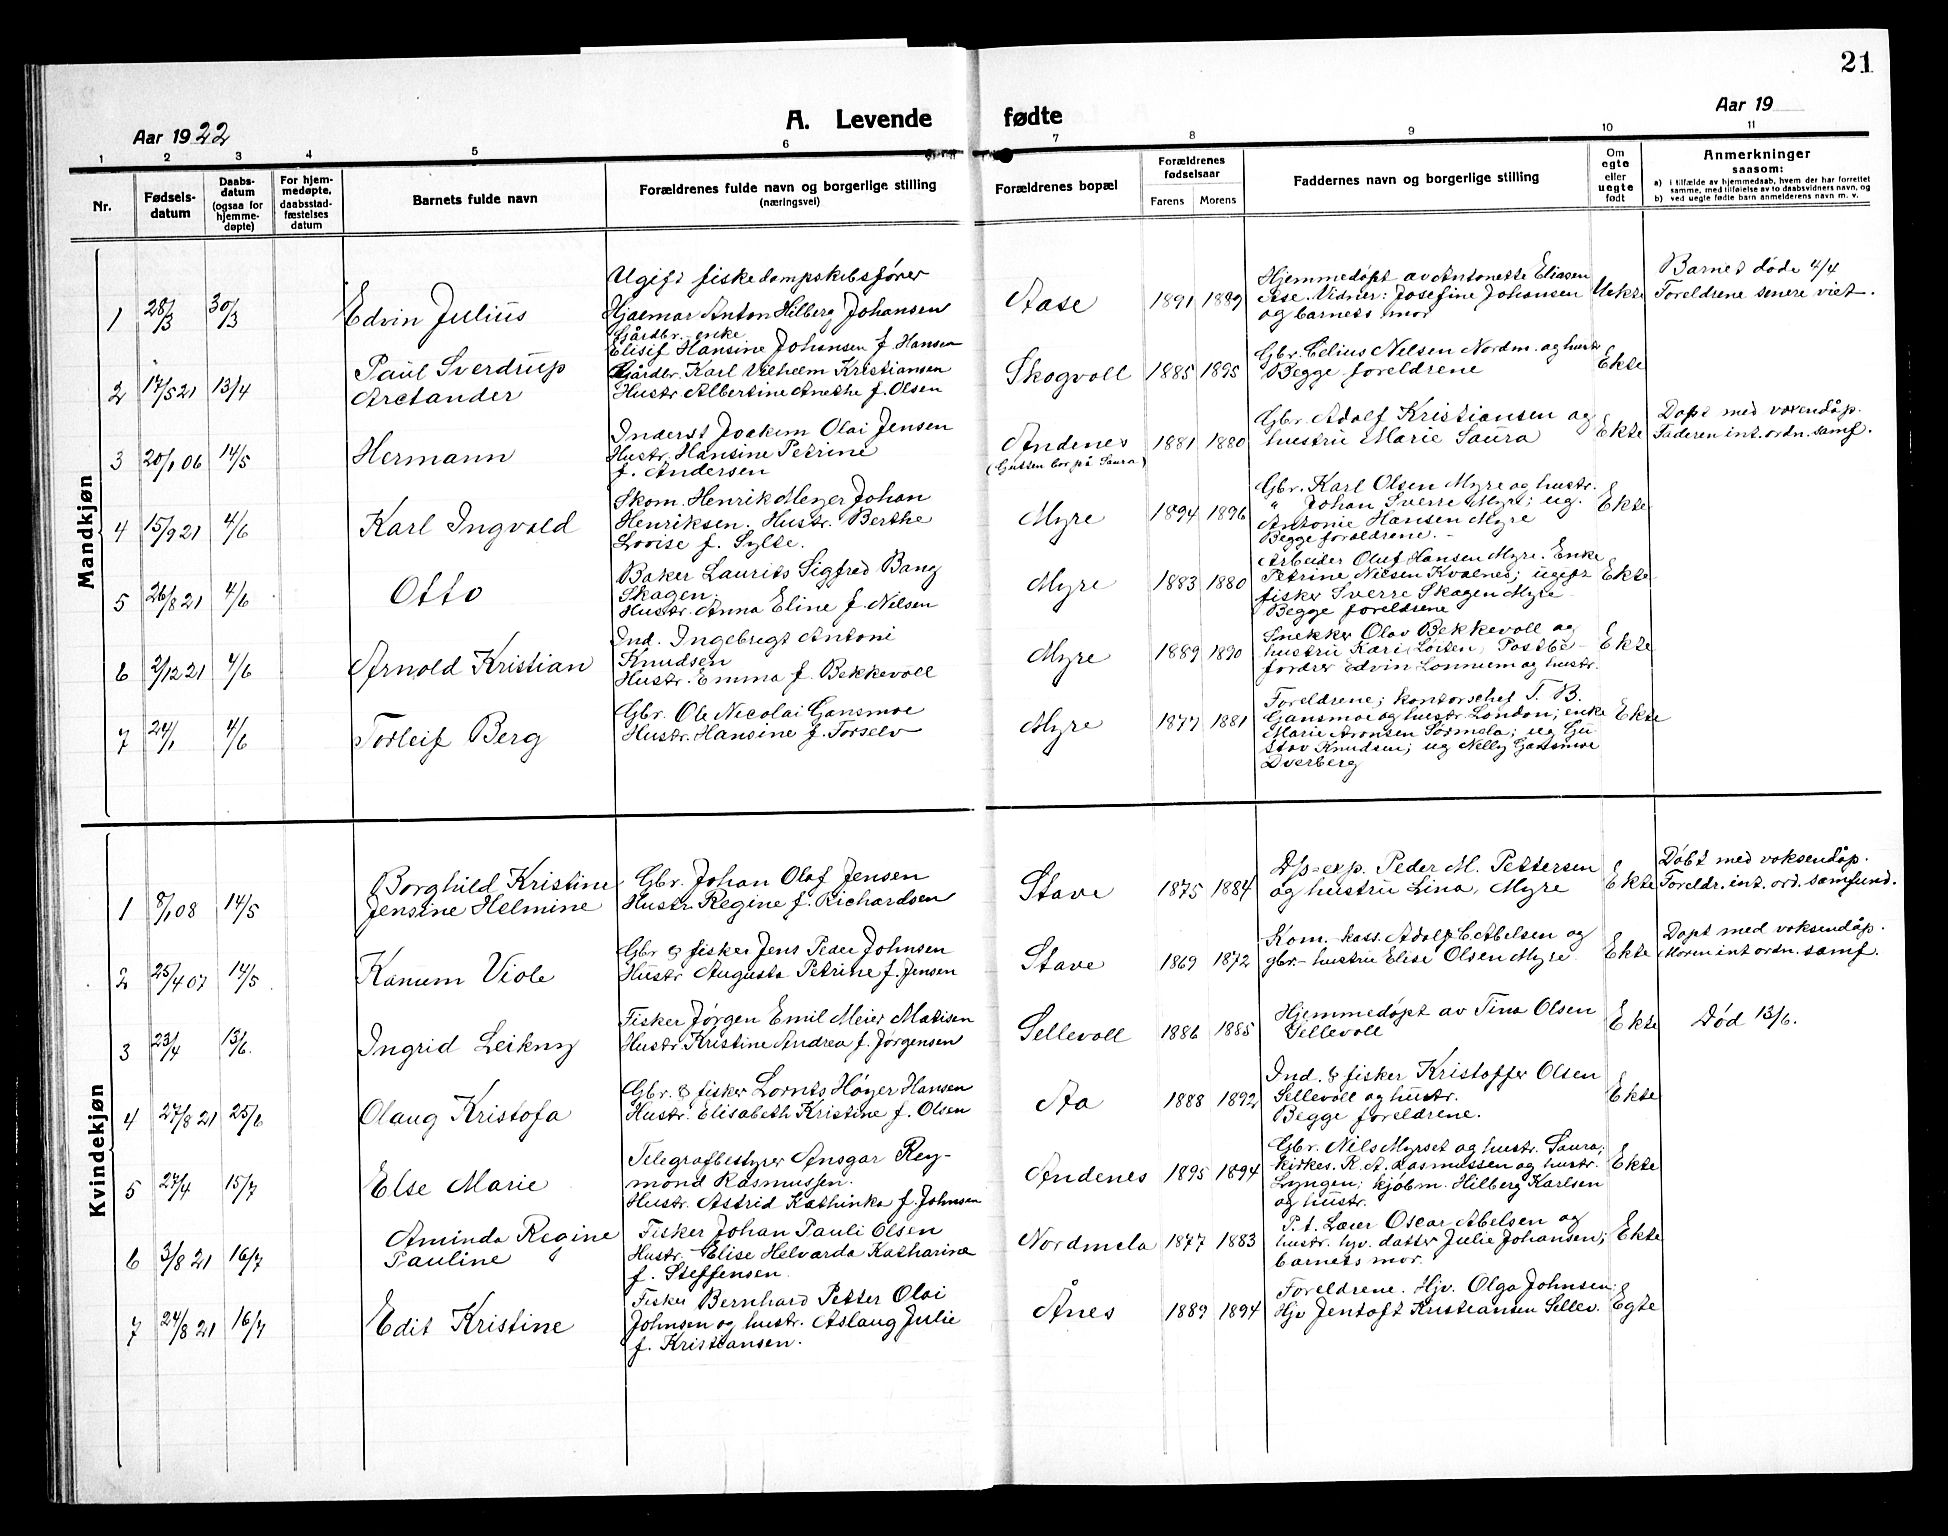 21
Aar 1922
A. Levende fødte
Aar 19
1 2 3 4 5 6 7 8 9 10 11
Nr.
Fødsels-
datum
Daabs-
datum
(ogsaa for
hjemme-
døpte)
For hjem-
medøpte,
daabsstad-
fæstelses
datum
Barnets fulde navn
Forældrenes fulde navn og borgerlige stilling
(næringsvei)
Forældrenes bopæl
Forældrenes
fødselsaar
Farens Morens
Faddernes navn og borgerlige stilling
Om
egte
eller
uegte
født
Anmerkninger
saasom:
a) i tilfælde av hjemmedaab, hvem der har forrettet
samme, med tilføielse av to daabsvidners navn, og
b) ved uegte fødte barn anmelderens navn m. v.
Mandkjøn
1 28/3 30/3
Edvin Julius
Ugift fiskedampskibsfører
Hjalmar Anton Hilberg Johansen
Gårdbr. enke
Elisif Hansine Johansen f. Hansen
Aase
1891 1889
Hjemmedøpt av Antonette Eliasen
Åse. Vidner: Josefine Johansen
og barnets mor
Uekte
Barnet døde 4/4
Foreldrene senere viet.
2 17/5 21 13/4
Paul Sverdrup
Arctander
Gårdbr. Karl Vilhelm Kristiansen
Hustr. Albertine Anethe f. Olsen
Skogvoll
1885 1895
Gbr. Celius Nilsen Nordm. og hustr
Begge foreldrene
Ekte
3 20/1 06 14/5
Hermann
Inderst Joakim Olai Jensen
Hustr. Hansine Petrine
f. Andersen
Andenes
(Gutten bor på Saura)
1881 1880
Gbr. Adolf Kristiansen og
hustru Marie Saura
Ekte
Døpt med voxendåp.
Faderen int. ordn. samf.
4 15/9 21 4/6
Karl Ingvald
Skom. Henrik Meyer Johan
Henriksen. Hustr. Berthe
Lovise f. Sylte.
Myre
1894 1896
Gbr. Karl Olsen Myre og hustr.
" Johan Sverre Myre; ug.
Antonie Hansen Myre
Begge foreldrene.
Ekte
5 26/8 21 4/6
Otto
Baker Laurits Sigfred Bang
Skagen.
Hustr. Anna Eline f. Nilsen
Myre
1883 1880
Arbeider Oluf Hansen Myre. Enke
Petrine Nilsen Kvalnes; ugift
fisker Sverre Skagen Myre
Begge foreldrene
Ekte
6 2/12 21 4/6
Arnold Kristian
Ind. Ingebrigt Antoni
Knudsen
Hustr. Emma f. Bekkevoll
Myre
1889 1890
Snekker Olav Bekkevoll og
hustru Kari, Postbe-
fordrer Edvin Lonnum og hustr.
Ekte
7 24/1 4/6
Torleif Berg
Gbr. Ole Nicolai Gansmoe
Hustr. Hansine f. Torselv
Myre
1877 1881
Foreldrene; kontorschef T. B.
Gansmoe og hustr. London; enke
Marie Aronsen Sørmela; ug Gu
stav Knudsen; ug Nelly Gansmoe
Dverberg
Ekte
Kvindekjøn
1 8/1 08 14/5
Borghild Kristine
Jensine Helmine
Gbr. Johan Olaf Jensen
Hustr Regine f. Richardsen
Stave
1875 1884
Dp-exp. Peder M. Pettersen
og hustru Lina, Myre
Ekte
Døbt med voksendåp.
Foreldr. int. ord. samfund.
2 25/4 07 14/5
Kanum Viole
Gbr & fisker Jens Peder Johnsen
Hustr Augusta Petrine f. Jensen
Stave
1869 1872
Kom. kass. Adolf C Abelsen og
gbr- hustru Elise Olsen Myre
Ekte
Døpt med voksendåp.
Moren int ordn. samf.
3 23/4 13/6.
Ingrid Leikny
Fisker Jørgen Emil Meier Matisen
Hustr Kristine Andrea f. Jørgensen
Sellevoll
1886 1885
Hjemmedøpt av Tina Olsen
Sellevoll
Ekte
Død 13/6.
4 27/8 21 25/6
Olaug Kristofa
Gbr. & fisker Lornts Høyer Hansen
Hustr. Elisabeth Kristine f. Olsen
Aa
1888 1892
Ind. & fisker Kristoffer Olsen
Sellevoll og hustr.
Begge foreldrene.
Ekte
5 27/4 15/7
Else Marie
Telegrafbestyrer Ansgar Rey-
mond Rasmussen.
Hustr. Astrid Kathinka f. Johnsen
Andenes
1895 1894
Gbr. Nils Myrset og hustr. Saura;
kirkes. R. A. Rasmussen og hustr.
Lyngen; kjøbm. Hilberg Karlsen
og hustr.
Ekte
6 3/8 21 16/7
Aminda Regine
Pauline
Fisker Johan Pauli Olsen
Hustr. Elise Helvarda Katharina
f. Steffensen.
Nordmela
1877 1883
P.t. Lærer Oscar Abelsen og
hustr. hjv. datter Julie Johansen;
barnets mor.
Ekte
7 24/8 21 16/7
Edit Kristine
Fisker Bernhard Petter Olai
Johnsen og hustr. Aslaug Julie
f. Kristiansen.
Ånes
1889 1894
Foreldrene. Hjv. Olga Johnsen;
Hjv Jentoft Kristiansen Sellev.
Egte